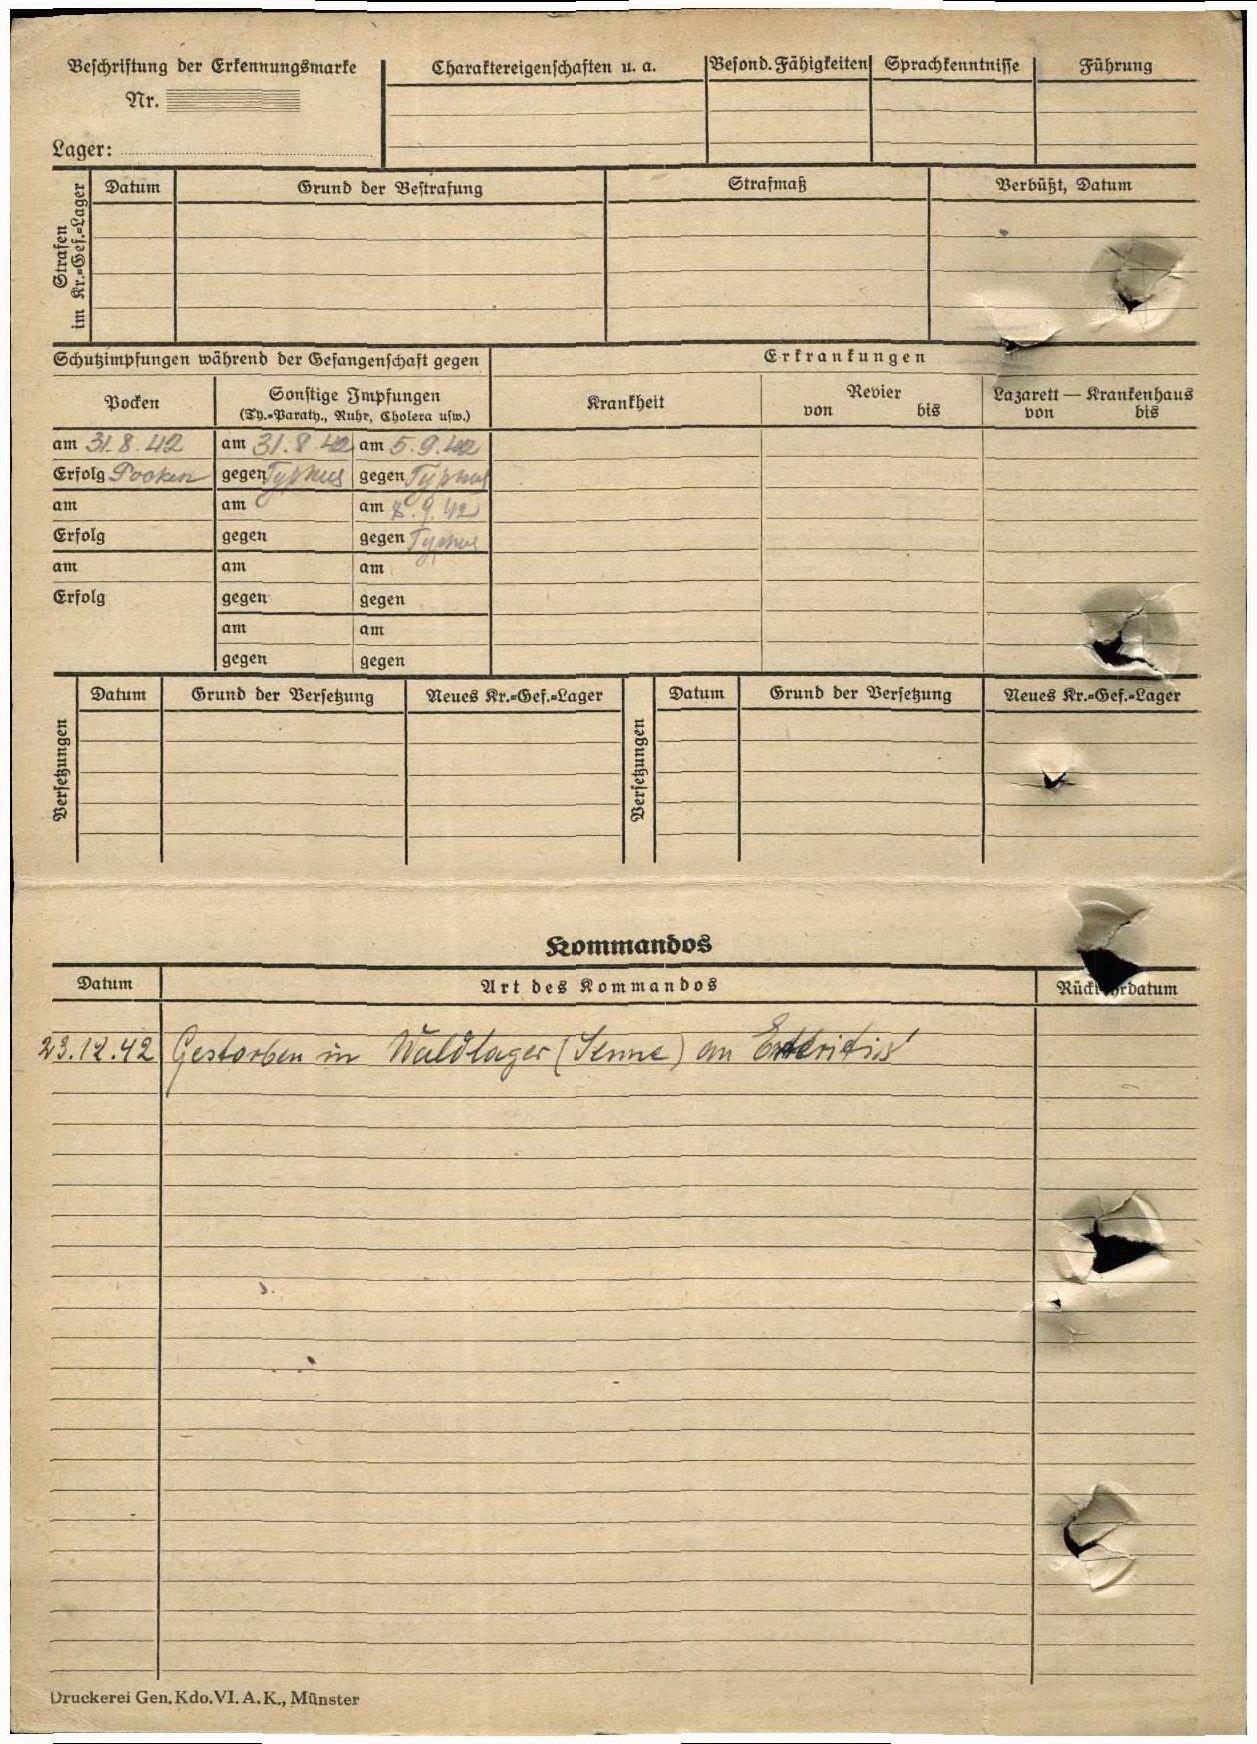 Beschriftung der Erkennungsmarke
Nr.
Lager:
Charaktereigenschaften u. a.
Besond. Fähigkeiten
Sprachkenntnisse
Führung
Strafen
im Kr.-Gef.-Lager
Datum
Grund der Bestrafung
Strafmaß
Verbüßt, Datum
Schutzimpfungen während der Gefangenschaft gegen
Erkrankungen
Pocken
Sonstige Impfungen
(Ty.-Paraty., Ruhr, Cholera usw.)
Krankheit
Revier
von bis
Lazarett — Krankenhaus
von bis
am 31.8.42 am 31.8.42 am 5.9.42
Erfolg Pocken gegen Typhus gegen Typhus
am am am 8.9.42
Erfolg gegen gegen Typhus
am am am
Erfolg gegen gegen
am am
gegen gegen
Versetzungen
Datum Grund der Versetzung Neues Kr.-Gef.-Lager
Versetzungen
Datum Grund der Versetzung Neues Kr.-Gef.-Lager
Kommandos
Datum Art des Kommandos
23.12.42 Gestorben in Waldlager (Senne) an Enteritis
Druckerei Gen. Kdo. VI. A. K., Münster